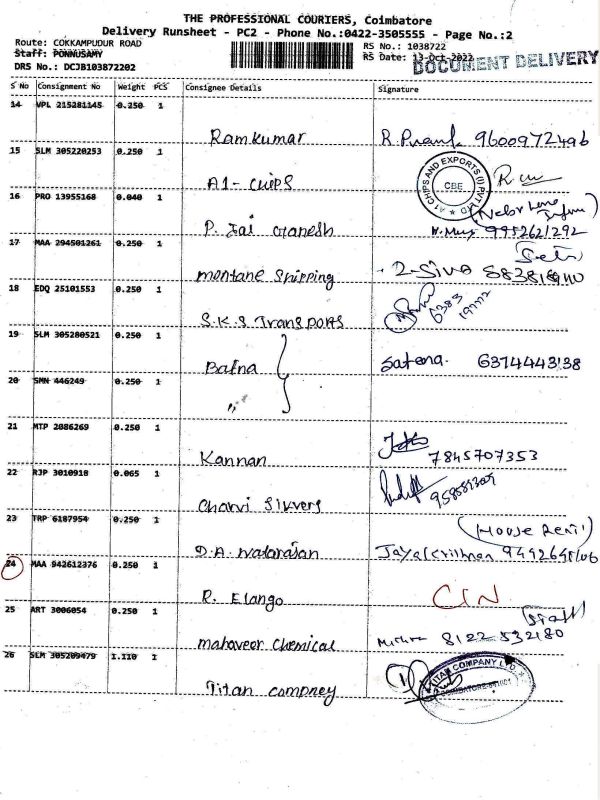 THE PROFESSIONAL COURIERS, Coimbatore
Delivery Runsheet - PC2 - Phone No.:0422-3505555 - Page No.:2
Route: COKKAMPUDUR ROAD RS No.: 1038722
Staff: PONNUSAMY RS Date: 13-Oct-2022
DRS No.: DCJB103872202 DOCUMENT DELIVERY
S No Consignment No Weight PCS Consignee Details Signature
14 VPL 215281145 0.250 1
Ramkumar 9600972496
15 SLM 305220253 0.250 1
A1-CHIPS A1 CHIPS AND EXPORTS (I) PVT LTD CBE
16 PRO 13955168 0.040 1
P. Jai Ganesh 9952621292
17 MAA 294501261 0.250 1
montane Shipping
18 EDQ 25101553 0.250 1
S.K.S Transports 6383
19 SLM 305280521 0.250 1
Bafna 6374443138
20 SMN 446249 0.250 1
"
21 MTP 2086269 0.250 1
Kannan 7845707353
22 RJP 3010918 0.065 1
23 TRP 6187954 0.250 1
(House Rent)
D.A. Natarajan
24 MAA 942612376 0.250 1
R. Elango
25 ART 3006054 0.250 1
mahaveer chemical 8122 532180
26 SLM 305209479 1.110 1
Titan compney TITAN COMPANY LTD.